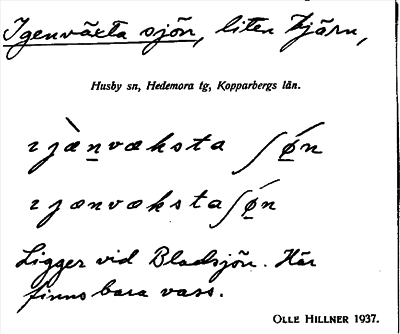 Igenväxta sjön, liten tjärn,
Husby sn, Hedemora tg, Kopparbergs län.
ıjæ̀n̲væksta ʃǿ̲n
ıjænvækstaʃǿ̲n
Ligger vid Bladsjön. Här
finns bara vass.
OLLE HILLNER 1937.